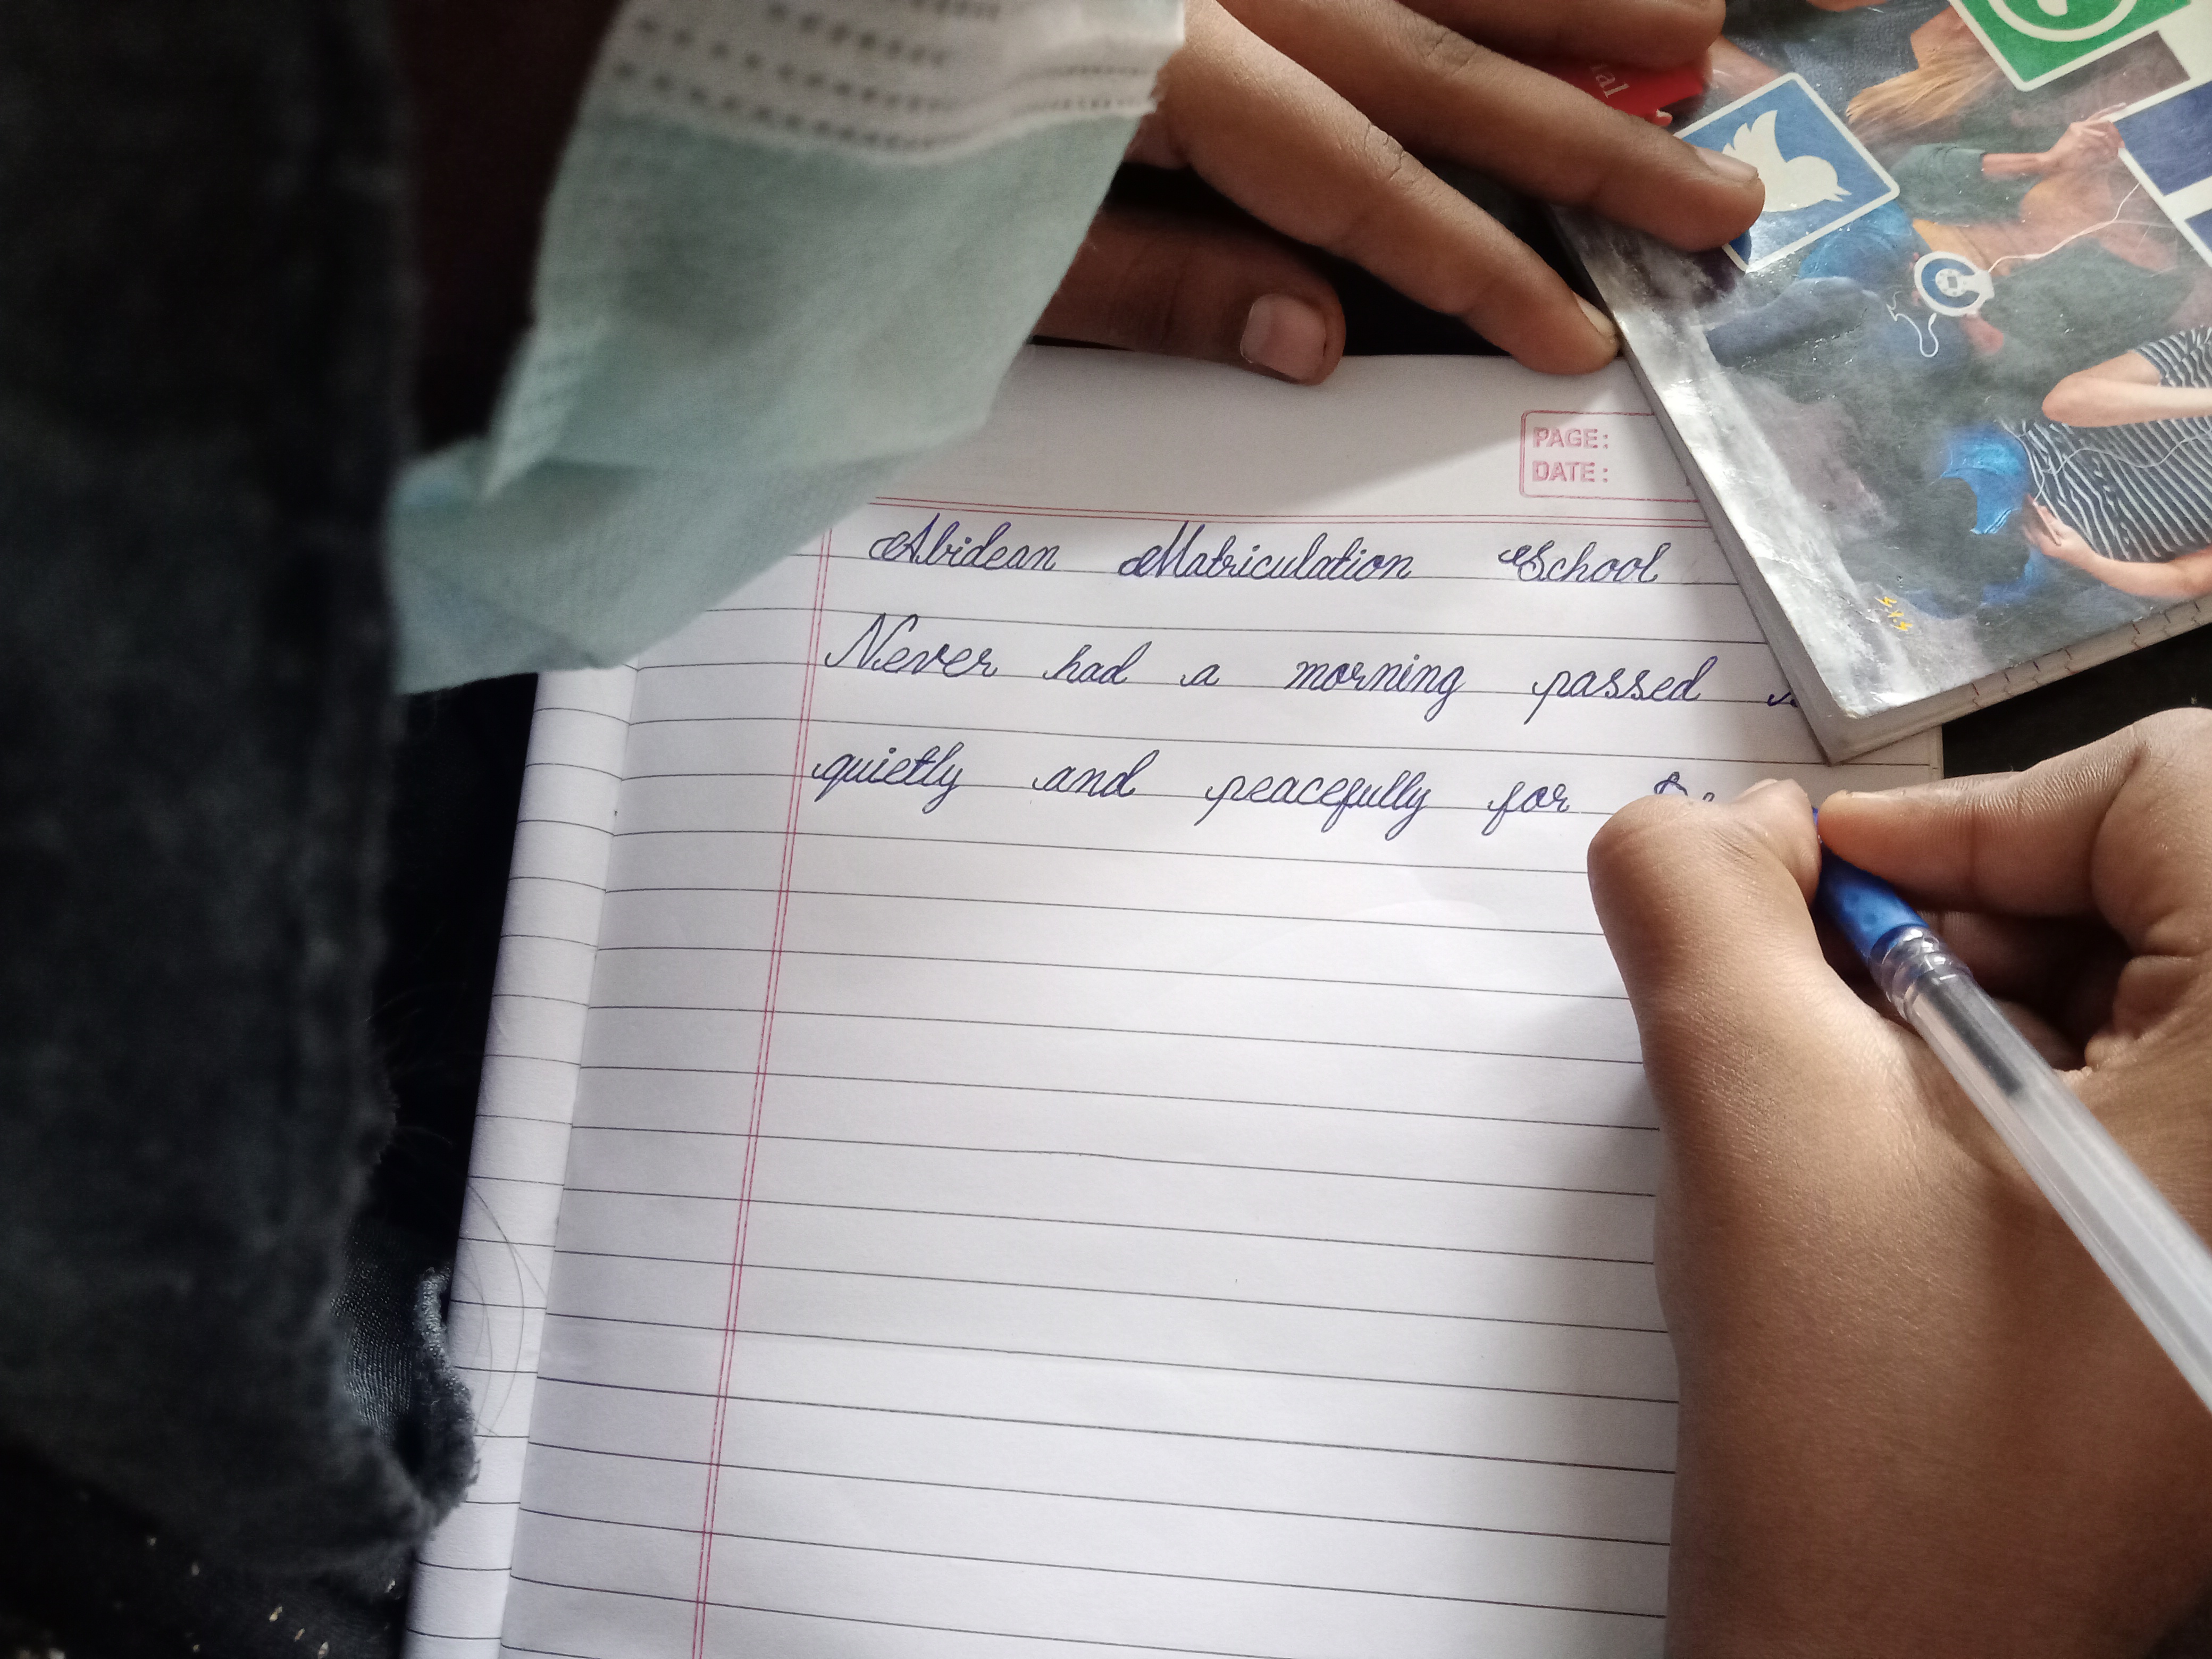 PAGE:
DATE:
Abidean Matriculation School
Never had a morning passed
quietly and peacefully for